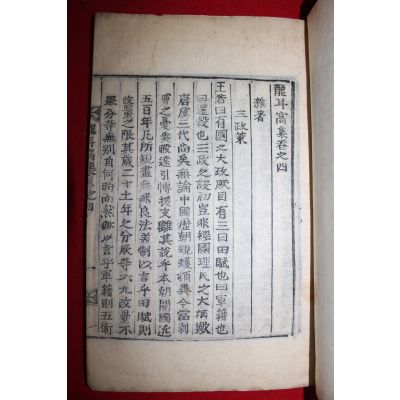 聾窩集卷之四
雜著
三政策
王若曰有國之大政厥目有三曰田賦也曰軍籍也
曰還穀也三政之設初豈非經國理民之大柄歟
唐虞三代尚矣無論中國歷朝規模頓異今當剥
膚之憂奚暇遠引博援支離其說乎本朝開國近
五百年凡所規畫無非良法美制以言乎田賦則
改量之限其歲二十土年之分厥等六九改量不
舉分等無別自何時而然歟以言乎軍籍則五衛
聾窩集卷之四 一